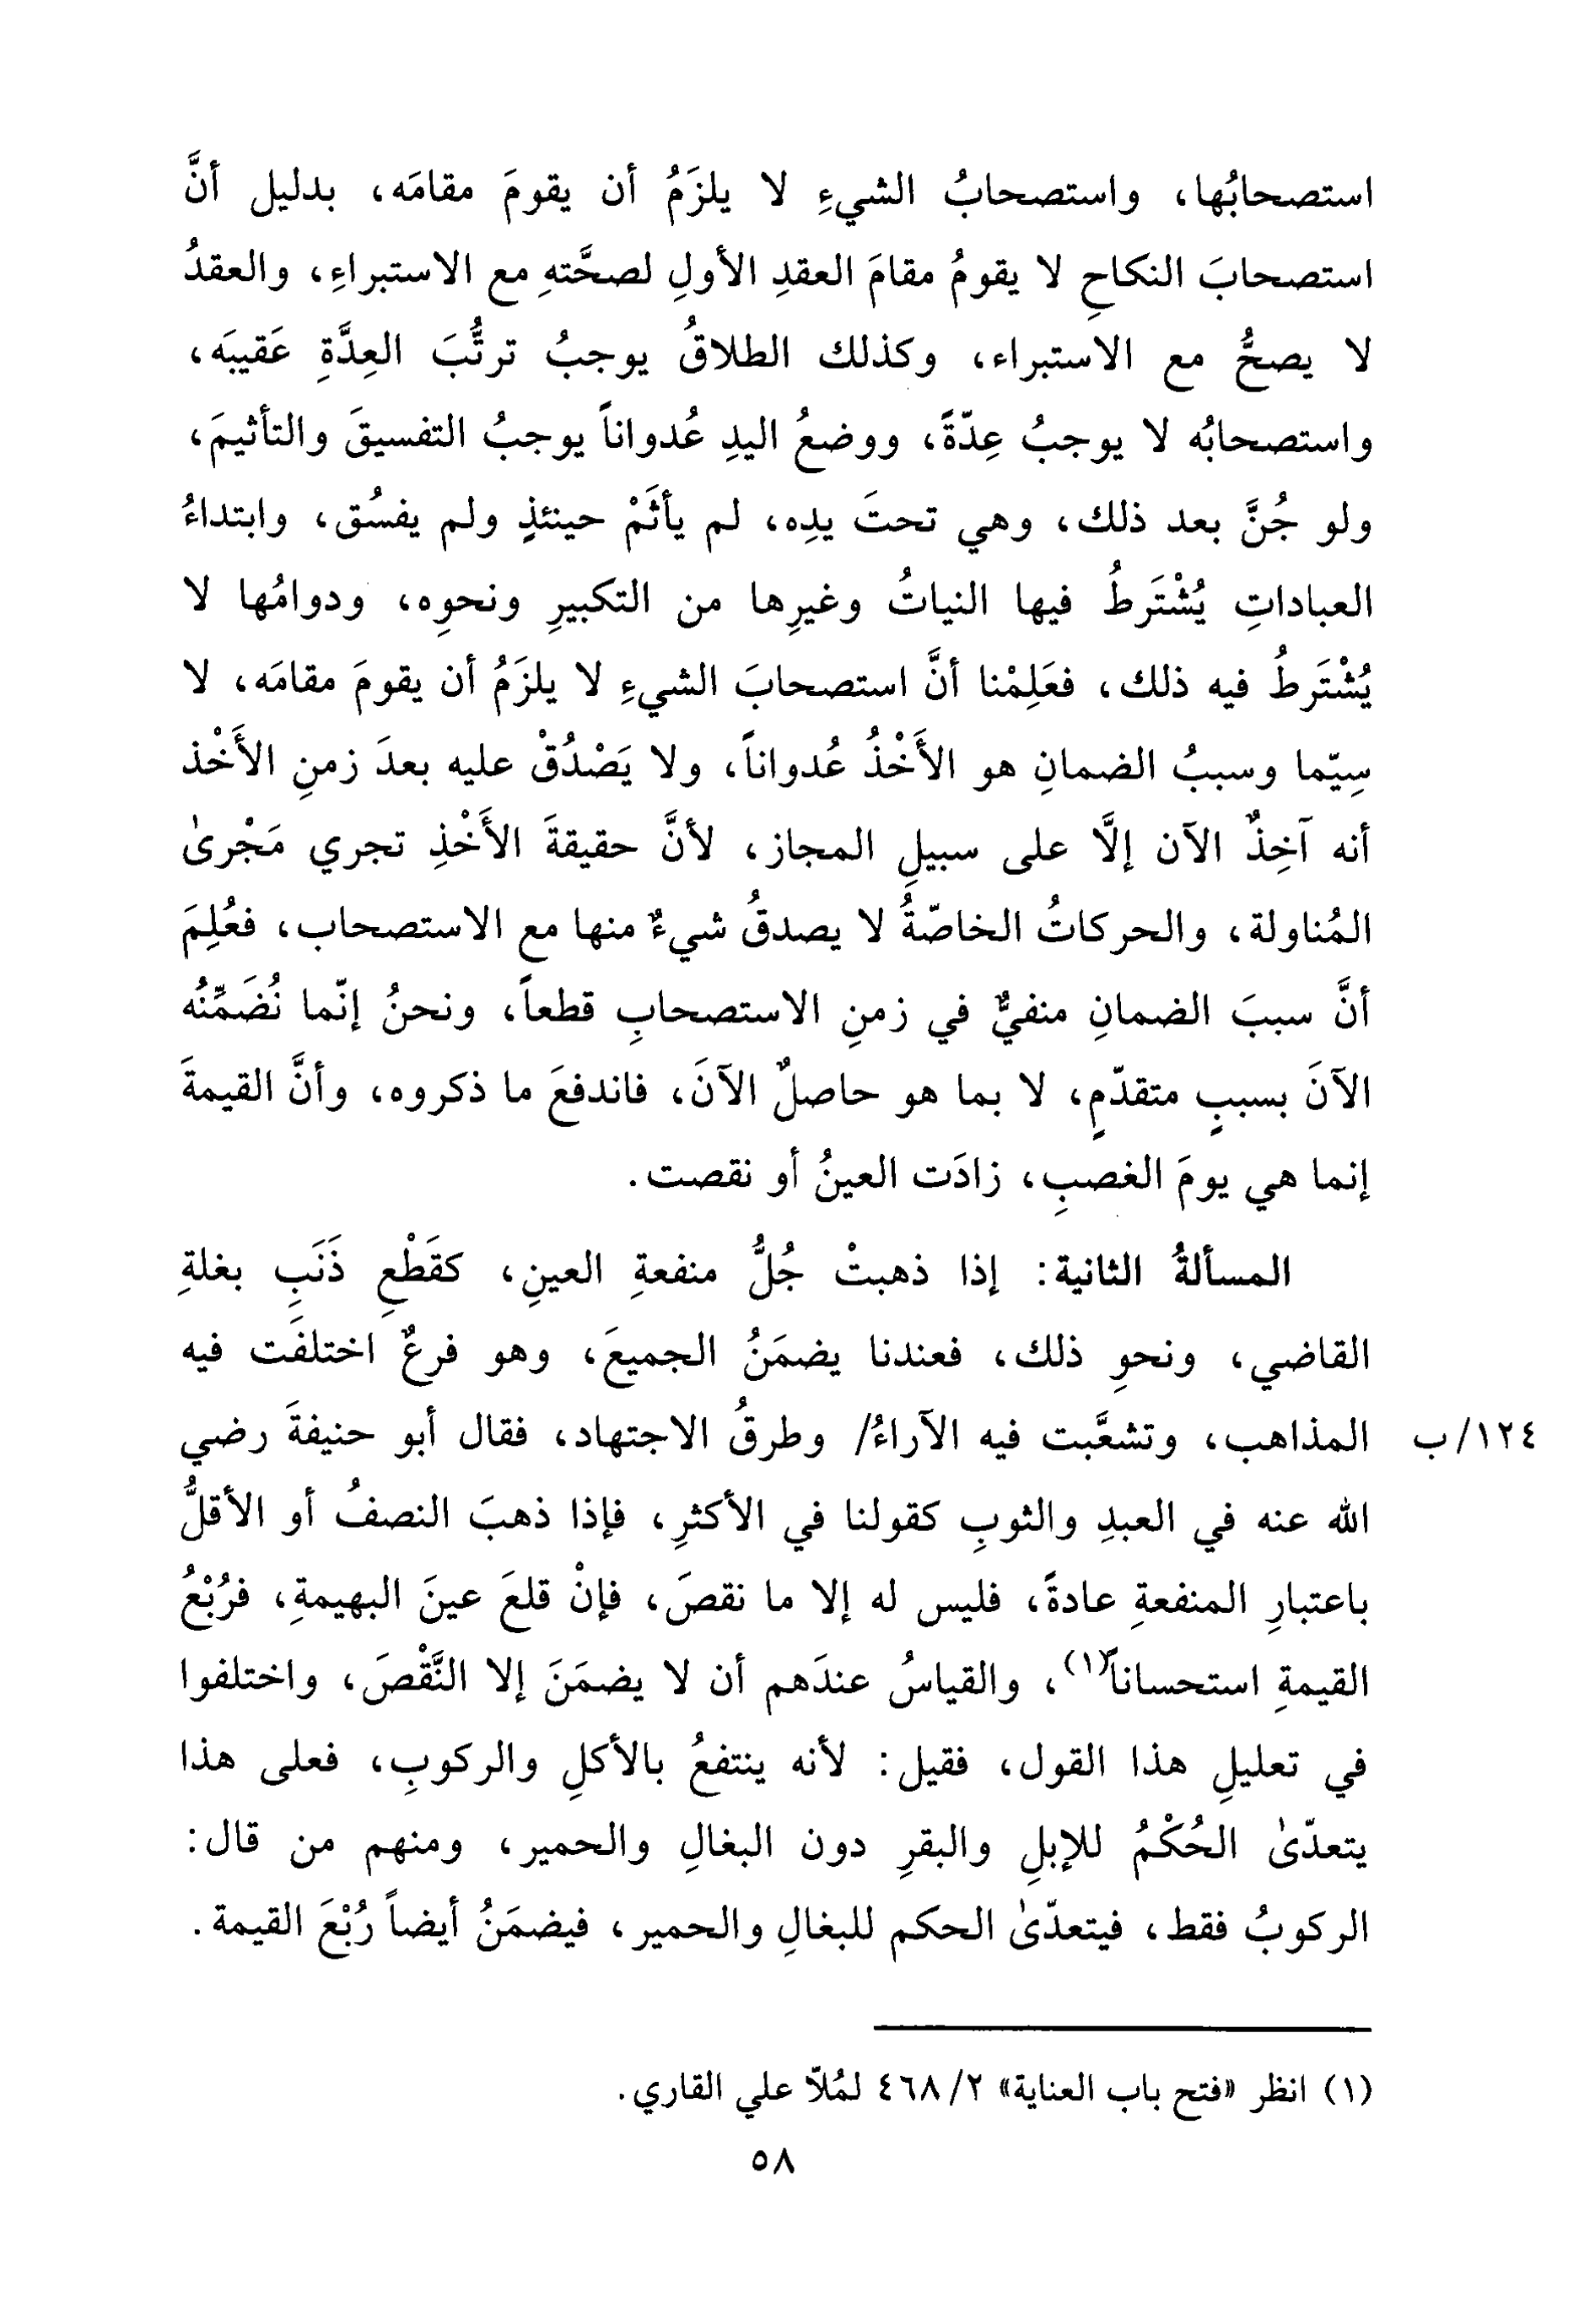 استصحابُها، واستصحابُ الشيءِ لا يلزَمُ أن يقومَ مقامَه، بدليل أنَّ
استصحابَ النكاحِ لا يقومُ مقامَ العقدِ الأولِ لصحَّتهِ مع الاستبراءِ، والعقدُ
لا يصحُّ مع الاستبراء، وكذلك الطلاقُ يوجبُ ترتُّبَ العِدَّةِ عَقيبَه،
واستصحابُه لا يوجبُ عِدّةً، ووضعُ اليدِ عُدواناً يوجبُ التفسيقَ والتأثيمَ،
ولو جُنَّ بعد ذلك، وهي تحتَ يدِه، لم يأثَمْ حينئذٍ ولم يفسُق، وابتداءُ
العباداتِ يُشْتَرطُ فيها النياتُ وغيرِها من التكبيرِ ونحوِه، ودوامُها لا
يُشْتَرطُ فيه ذلك، فعَلِمْنا أنَّ استصحابَ الشيءِ لا يلزَمُ أن يقومَ مقامَه، لا
سِيّما وسببُ الضمانِ هو الأَخْذُ عُدواناً، ولا يَصْدُقْ عليه بعدَ زمنِ الأَخْذ
أنه آخِذٌ الآن إلَّا على سبيلِ المجاز، لأنَّ حقيقةَ الأَخْذِ تجري مَجْرىٰ
المُناولة، والحركاتُ الخاصّةُ لا يصدقُ شيءٌ منها مع الاستصحاب، فعُلِمَ
أنَّ سببَ الضمانِ منفيٌّ في زمنِ الاستصحابِ قطعاً، ونحنُ إنّما نُضَمِّنُه
الآنَ بسببٍ متقدّمٍ، لا بما هو حاصلٌ الآنَ، فاندفعَ ما ذكروه، وأنَّ القيمةَ
إنما هي يومَ الغصبِ، زادَت العينُ أو نقصت.
المسألةُ الثانية: إذا ذهبتْ جُلُّ منفعةِ العينِ، كقَطْعِ ذَنَبِ بغلةِ
القاضي، ونحوِ ذلك، فعندنا يضمَنُ الجميعَ، وهو فرعٌ اختلفَت فيه
المذاهب، وتشعَّبت فيه الآراءُ/ وطرقُ الاجتهاد، فقال أبو حنيفةَ رضي ١٢٤/ب
الله عنه في العبدِ والثوبِ كقولنا في الأكثرِ، فإذا ذهبَ النصفُ أو الأقلُّ
باعتبارِ المنفعةِ عادةً، فليس له إلا ما نقصَ، فإنْ قلعَ عينَ البهيمةِ، فرُبْعُ
القيمةِ استحساناً(١)، والقياسُ عندَهم أن لا يضمَنَ إلا النَّقْصَ، واختلفوا
في تعليلِ هذا القول، فقيل: لأنه ينتفعُ بالأكلِ والركوبِ، فعلى هذا
يتعدّىٰ الحُكْمُ للإبلِ والبقرِ دون البغالِ والحمير، ومنهم من قال:
الركوبُ فقط، فيتعدّىٰ الحكم للبغالِ والحمير، فيضمَنُ أيضاً رُبْعَ القيمة.
(١) انظر «فتح باب العناية» ٤٦٨/٢ لمُلاّ علي القاري.
٥٨